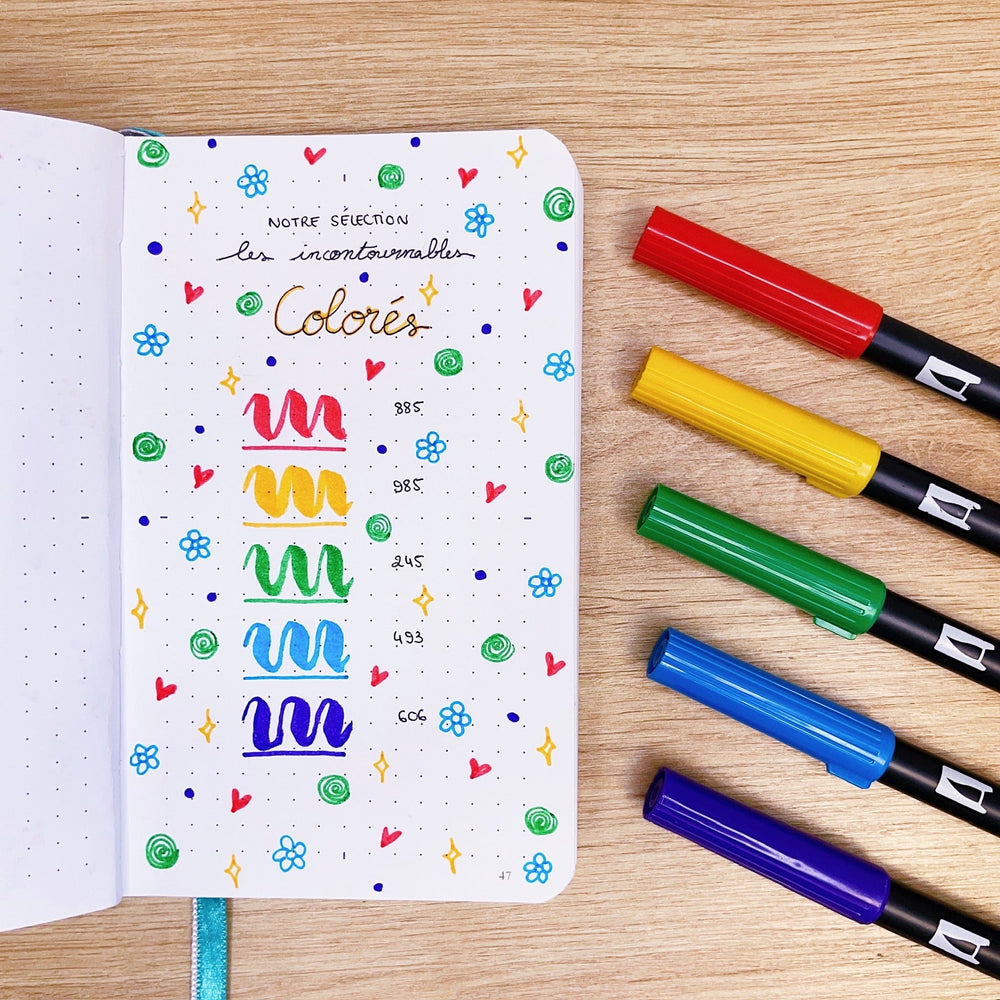 NOTRE SÉLECTION
les incontournables
Colorés
885
985
245
493
606
47